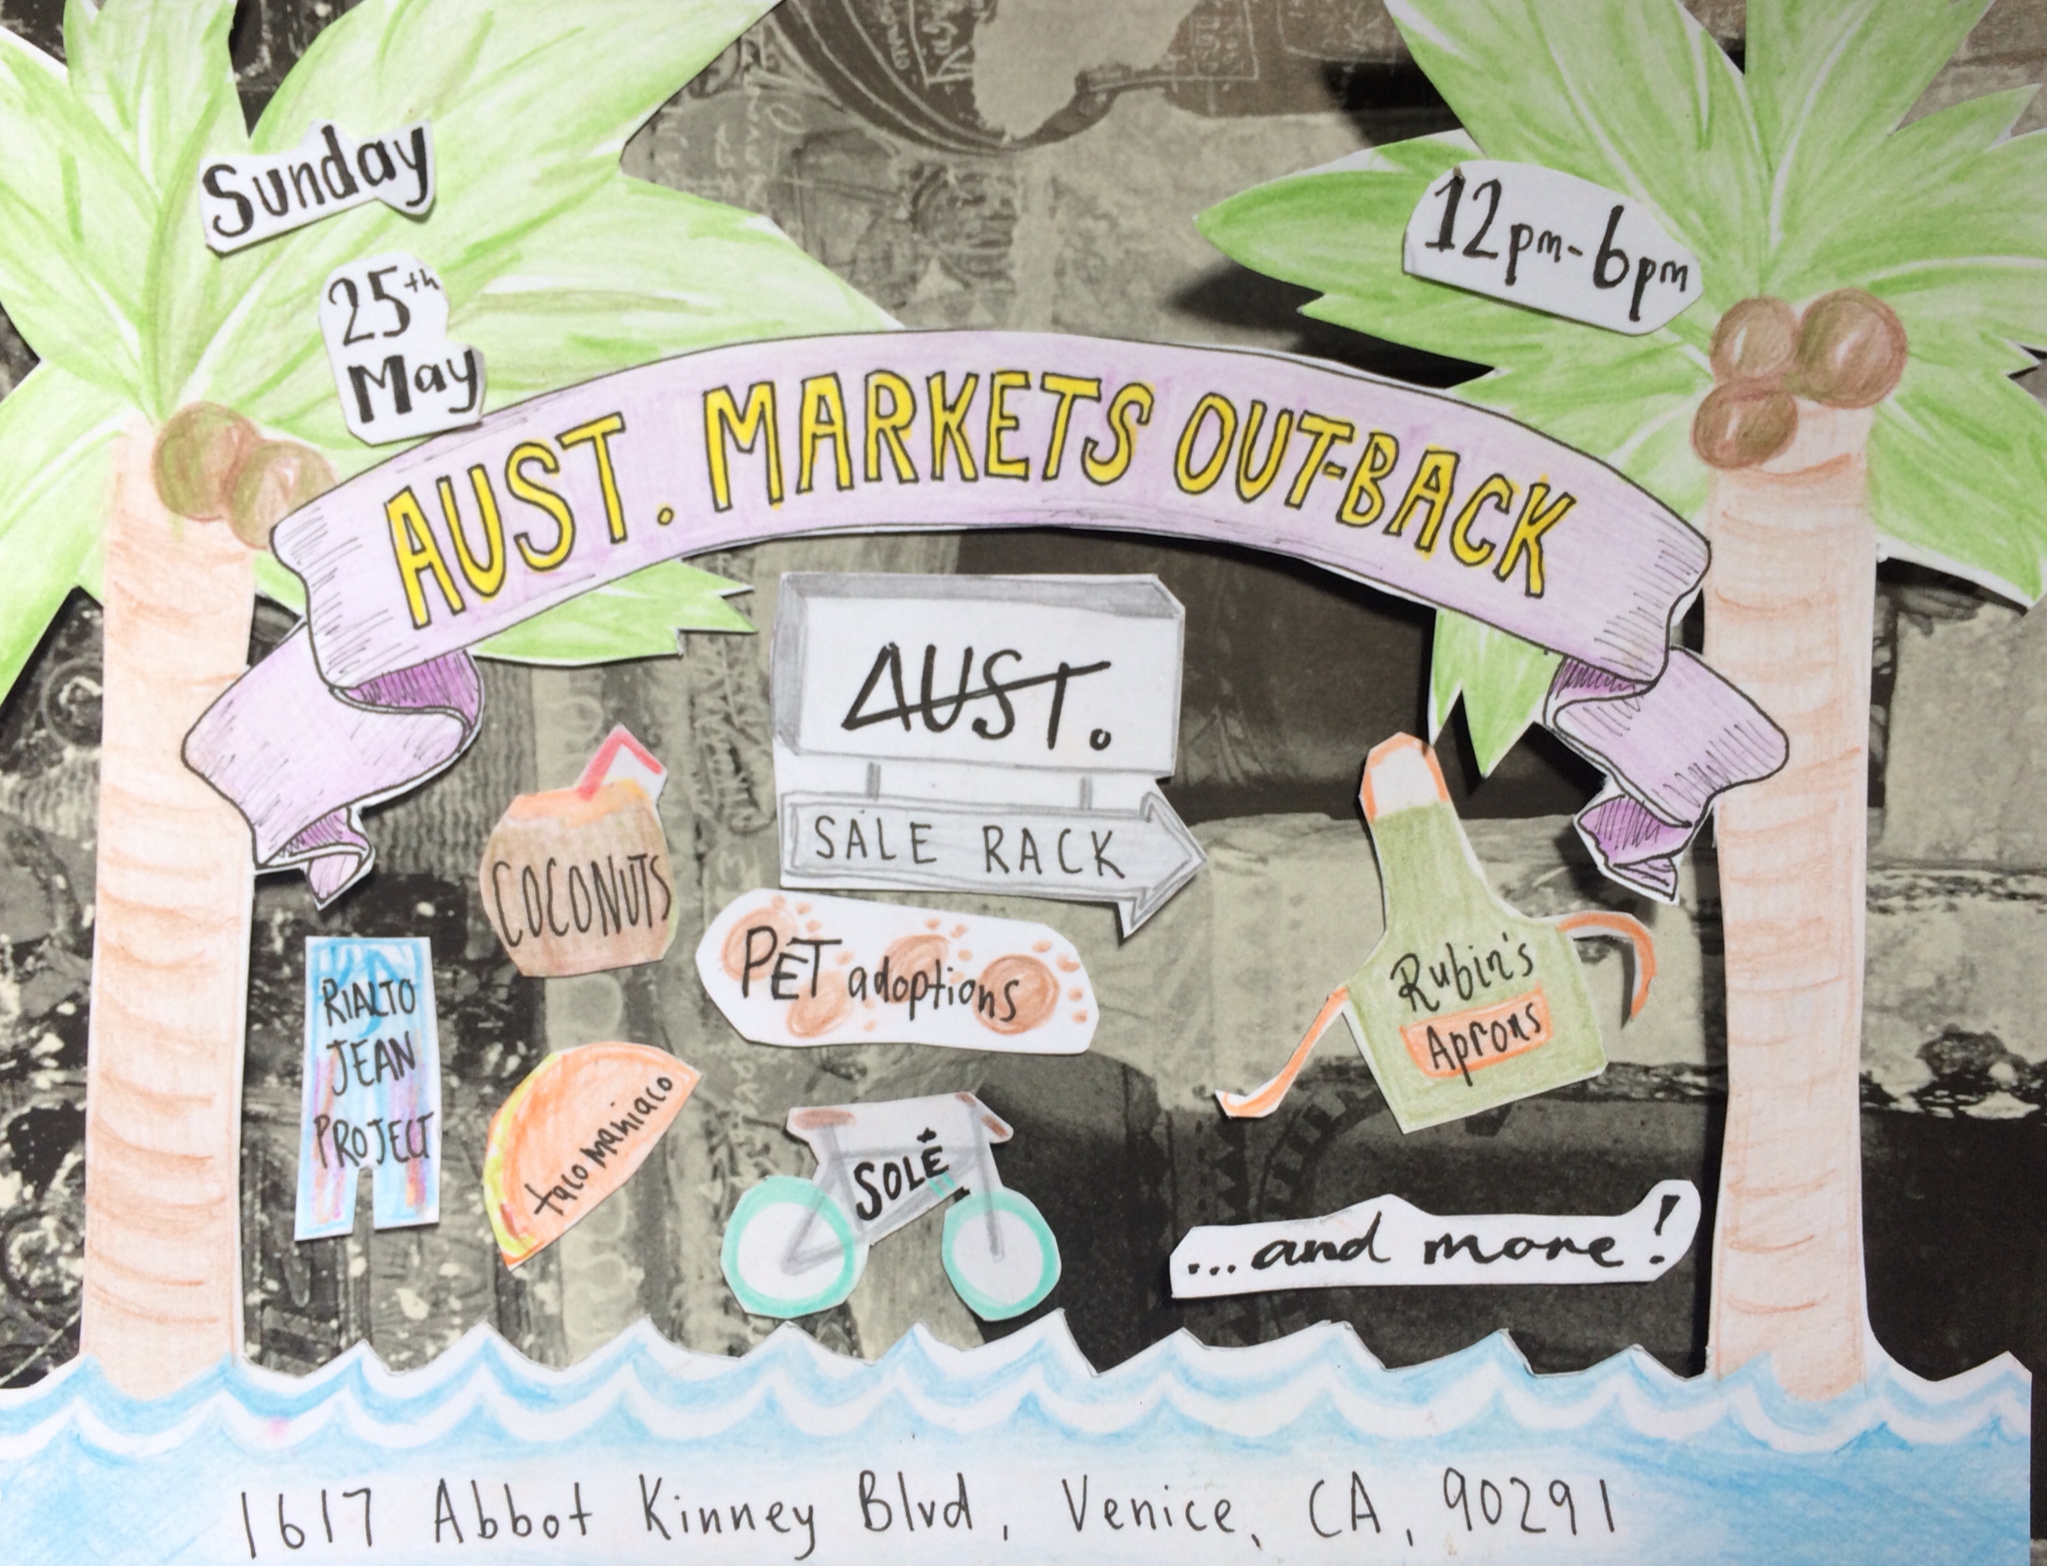 Sunday
25th
May
12pm-6pm
AUST. MARKETS OUT-BACK
AUST.
SALE RACK
COCONUTS
PET adoptions
RIALTO
JEAN
PROJECT
taco maniaco
SOLÉ
Rubin's
Aprons
...and more!
1617 Abbot Kinney Blvd, Venice, CA, 90291